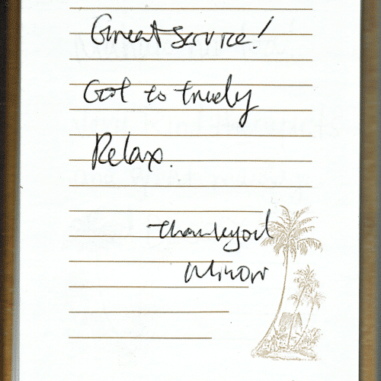 Great service!
Got to truely
Relax.
Thankyou